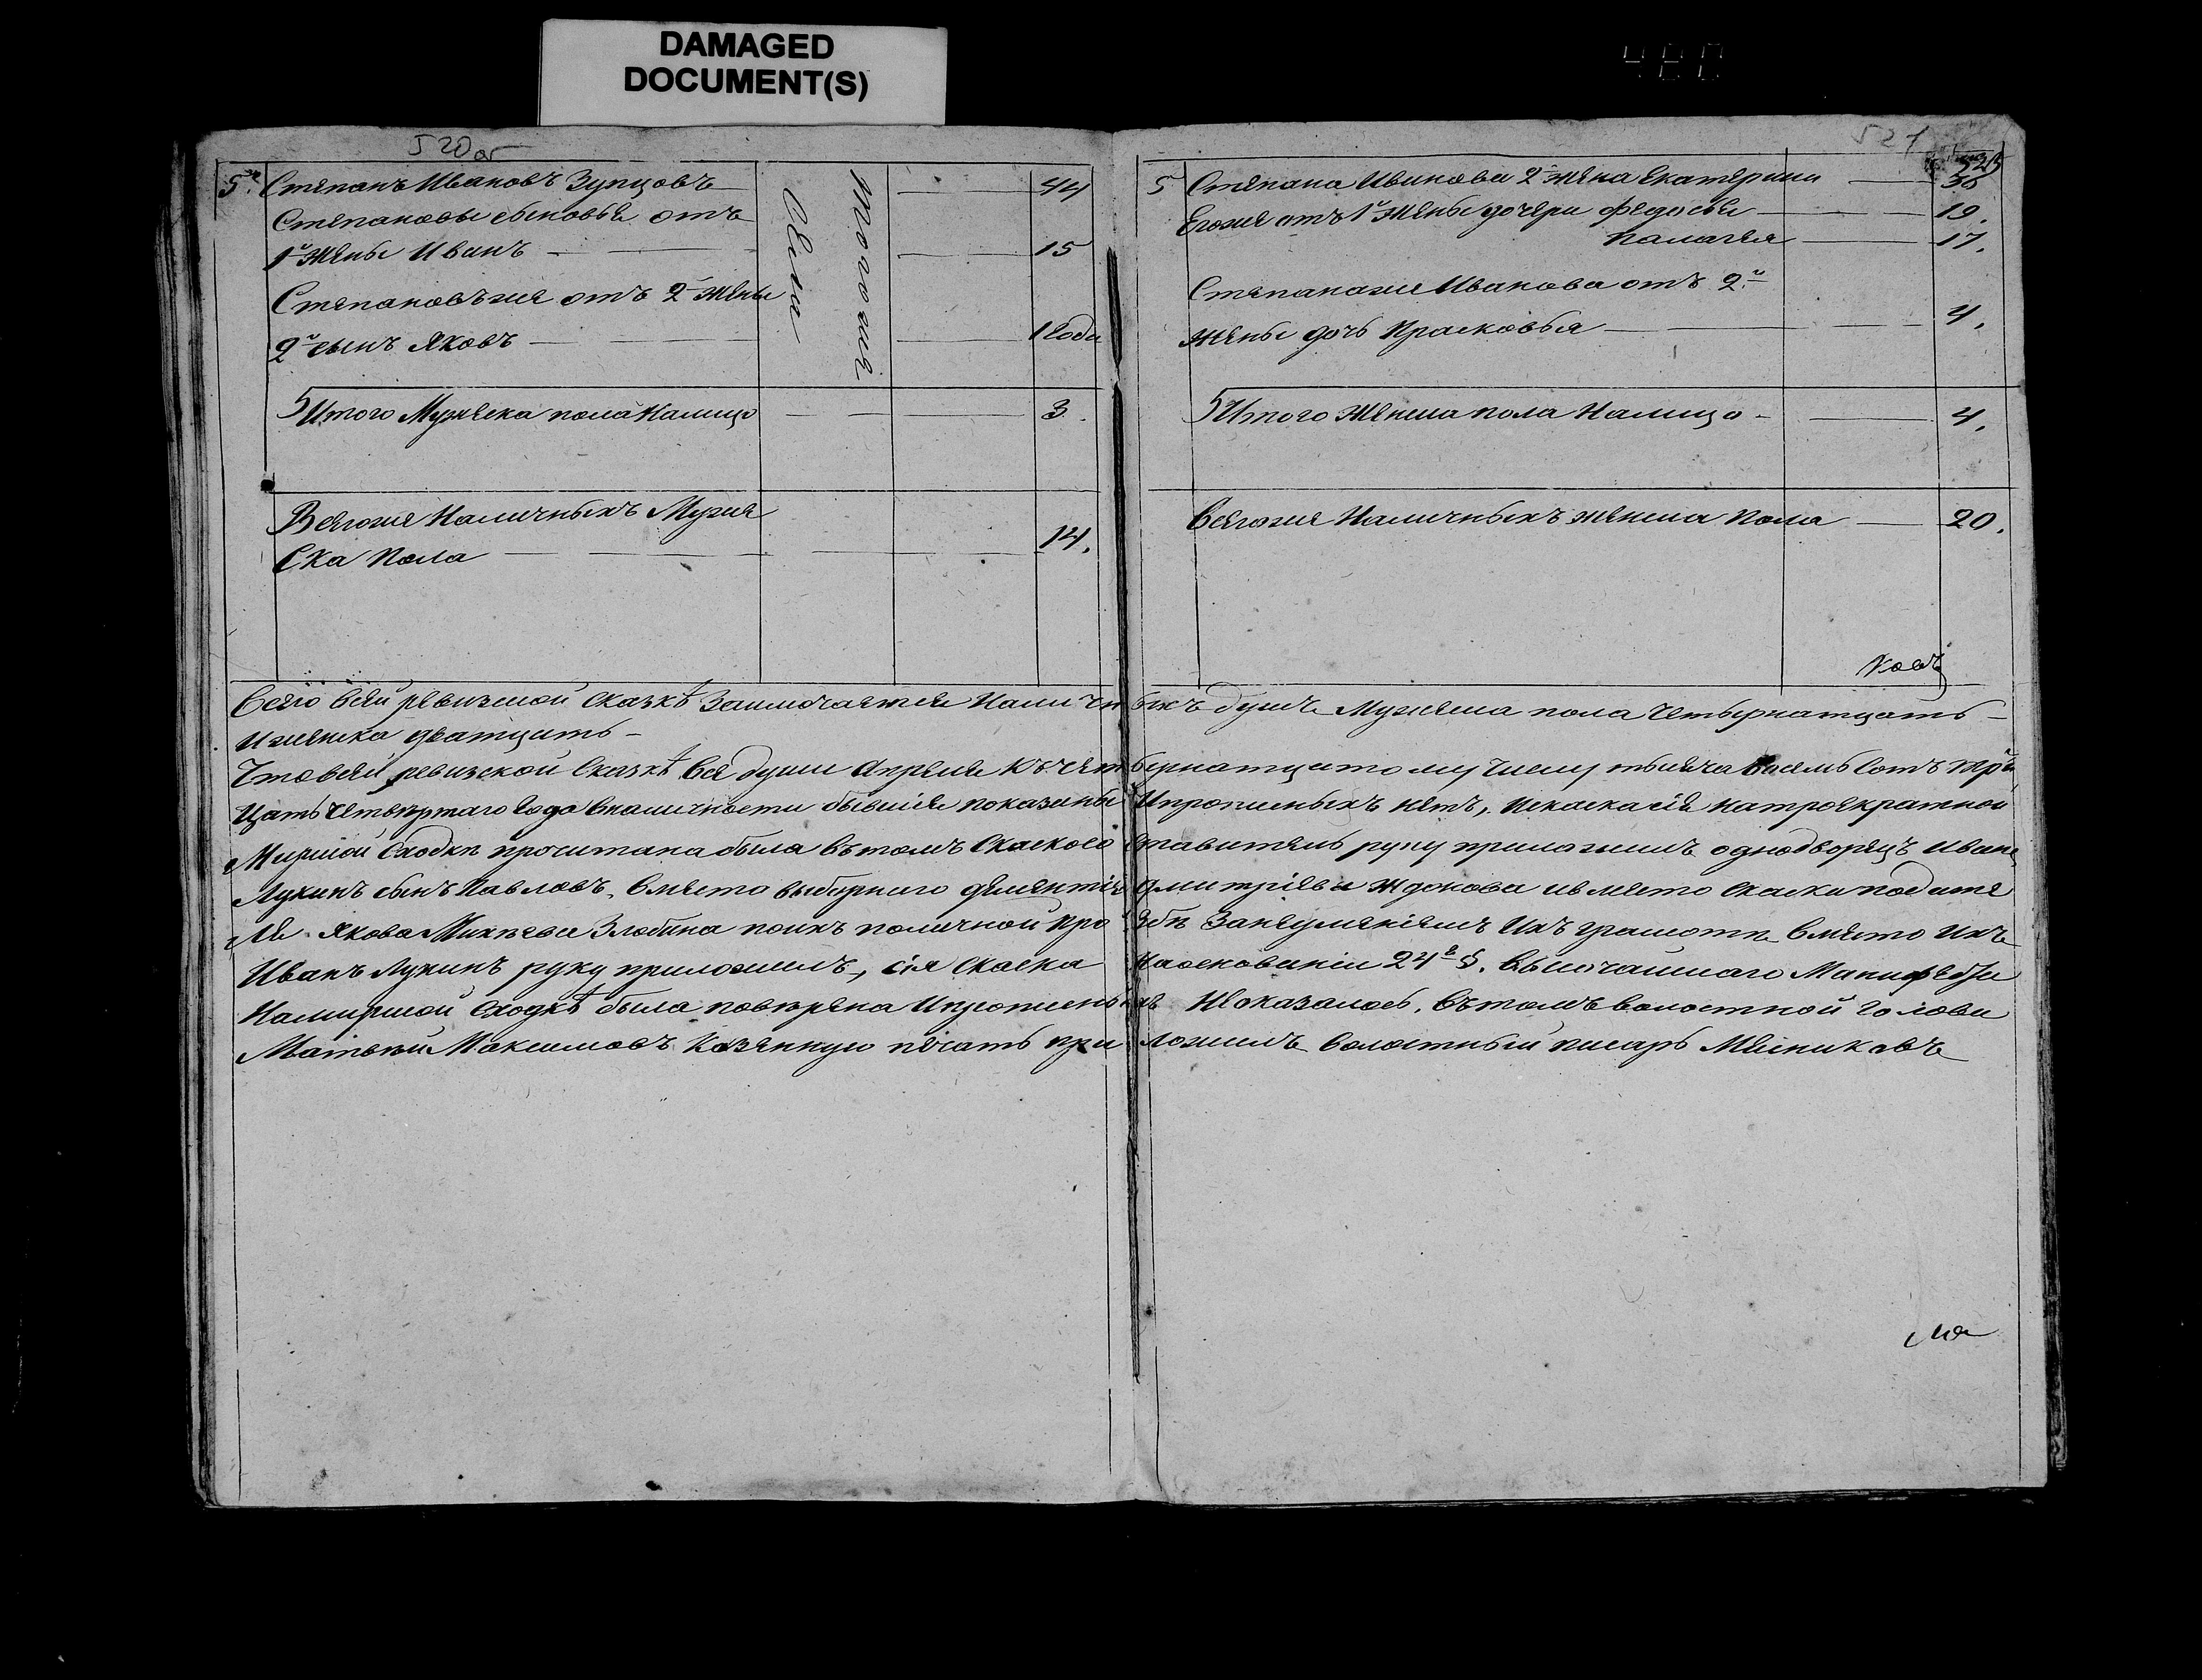 DAMAGED
DOCUMENT(S)
480
520 об
5й Степанъ Ивановъ Зупцовъ 44
Степановы сыновья отъ
1й жены Иванъ 15
Степановъ же отъ 2й жены
2й сынъ Яковъ 1 года
тогоже
Села
5 Итого Мужеска пола налицо 3.
Всегоже Наличныхъ Муже
ска Пола 14.
521
525
5 Степана Иванова 2 жена Екатерина
Егоже отъ 1й жены дочери Федосья 19.
Палагея 17.
Степанаже Иванова отъ 2й
жены дочь Прасковья 4.
5 Итого Женска пола Налицо 4.
Всегоже Наличныхъ женска Пола 20.
ковъ
Всего всей ревизской сказкѣ Заключается Наличныхъ душъ Мужеска пола четырнатцать
и женска дватцать
Что всей ревизской сказкѣ все души Апреля къ четырнатцатому числу тысяча восемь сотъ три
цать четвертаго года вналичности бывшія показаны Ипрописныхъ нетъ, Искаска сія натроекратной
Мирской сходки прочитана была въ томъ Скаскосоставитель руку приложилъ однодворецъ Иванъ
Лукинъ сынъ Павловъ, Вместо выборнаго Дементія Дмитріева Жданова и вместо скаски подате
ля Якова Михѣева Злобина поихъ поличной прозбѣ Занеумениемъ Ихъ грамоты вместо ихъ
Иванъ Лукинъ руку приложилъ, сія скаска Наоснованіи 24 §. высочайшаго Манифеста
Намирской сходкѣ была поверена Ипрописныхъ Неоказалось. въ томъ волостной голова
Матвей Максимовъ Казенную печать приложилъ Волостный писарь Месниковъ